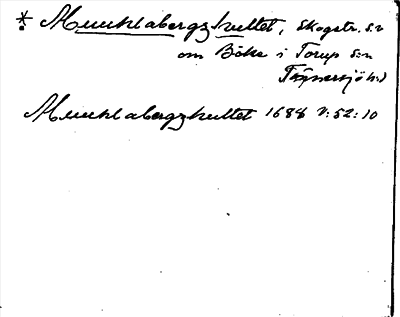 * Muuklabergzkullet, Skogstr. s.v
om Böke i Torup s:n
Tönnersjö h:d
Muuklabergzkullet 1688 V:52:10